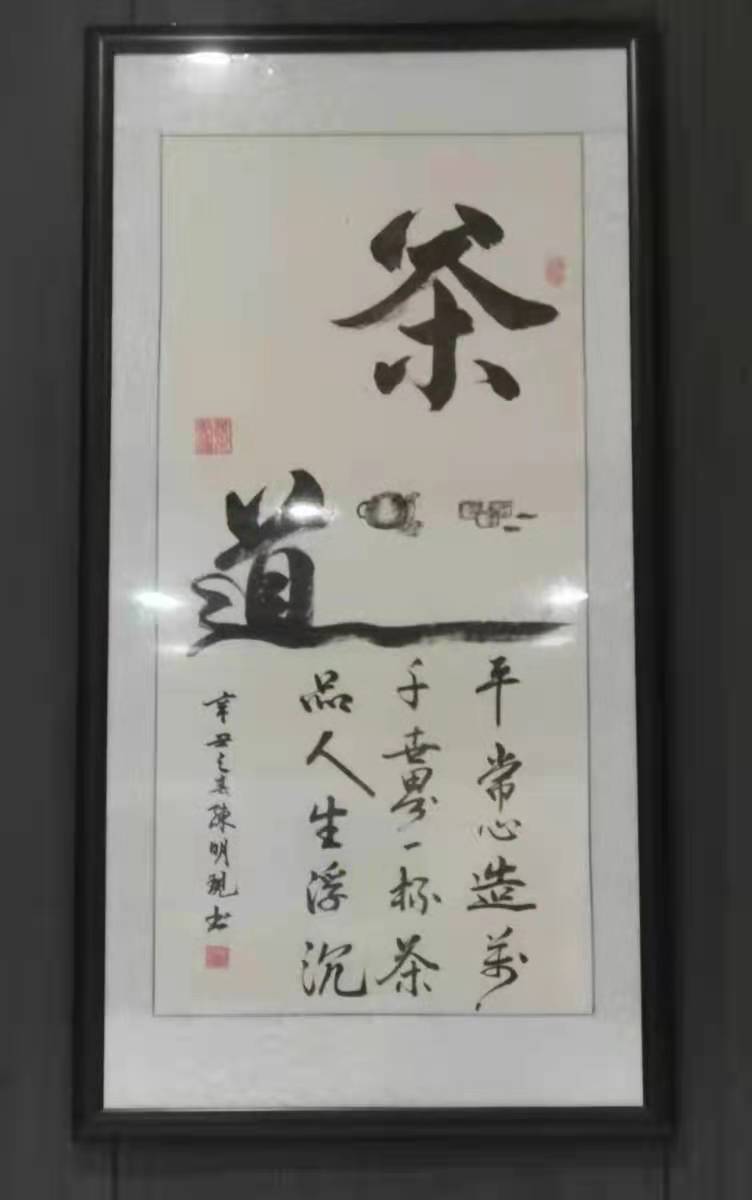 茶
道
平常心造万
千世界一杯茶
品人生浮沉
辛丑之春陳明觀书